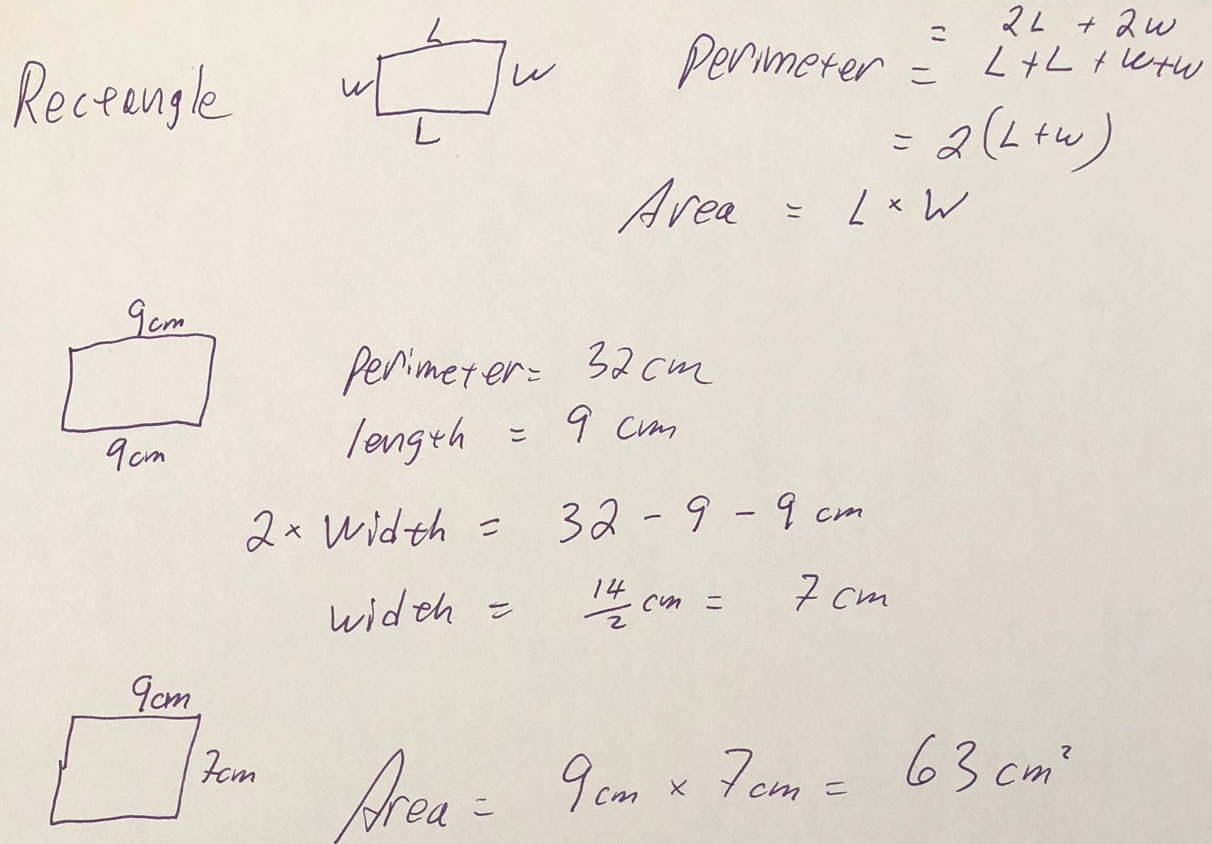 L
Rectangle W W
L
= 2L + 2W
Perimeter = L+L + W+W
= 2(L+W)
Area = L × W
9cm
9cm
Perimeter= 32cm
length = 9 cm
2× Width = 32 - 9 - 9 cm
width = 14/2 cm = 7 cm
9cm
7cm
Area = 9cm × 7cm = 63 cm²